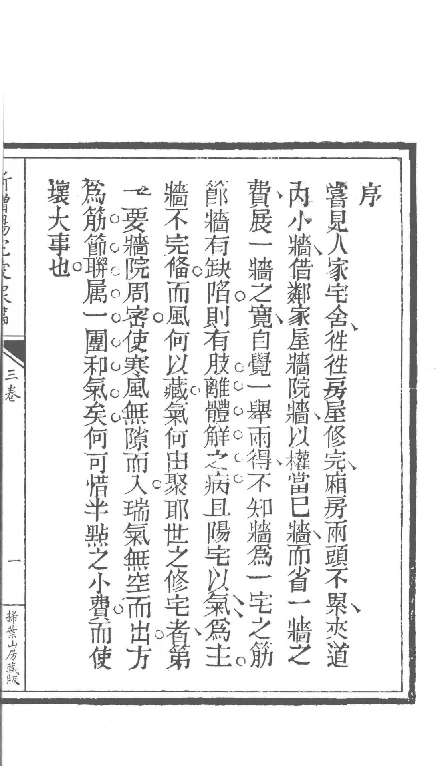 序
嘗見人家宅舍徃徃房屋修完廂房兩頭不累夾道
內小牆借鄰家屋牆院牆以權當已牆而省一牆之
費展一牆之寬自覺一舉兩得不知牆爲一宅之筋
節牆有缺陷則有肢離體解之病且陽宅以氣爲主
牆不完僃而風何以藏氣何由聚耶世之修宅者第
一要牆院周密使寒風無隙而入瑞氣無空而出方
爲筋節聯属一團和氣矣何可惜半點之小費而使
壞大事也
三卷
一
掃葉山房藏版